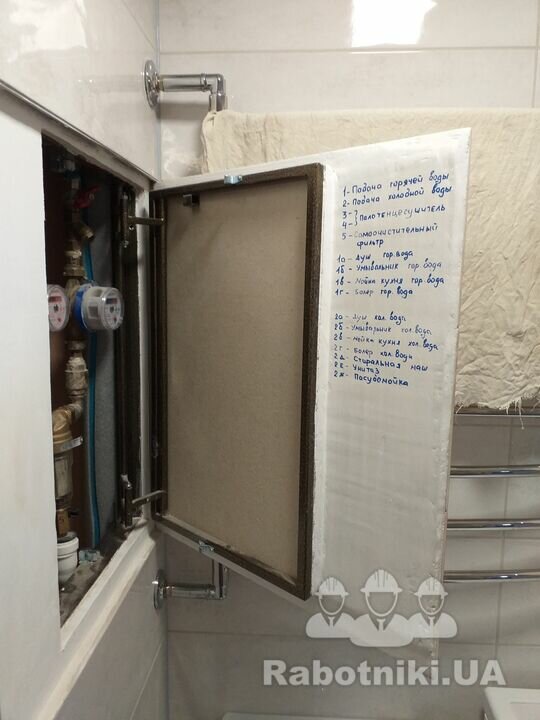 1 - Подача горячей воды
2 - Подача холодной воды
3 - } Полотенцесушитель
4 - }
5 - Самоочистительный
фильтр
1а - Душ гор. вода
1б - Умывальник гор. вода
1в - Мойка кухня гор. вода
1г - Болер гор. вода
2а - Душ хол. вода
2б - Умывальник гол. вода
2в - Мойка кухня хол. вода
2г - Болер хол. вода
2д - Стиральная маш
2е - Унитаз
2ж - Посудомойка
Rabotniki.UA